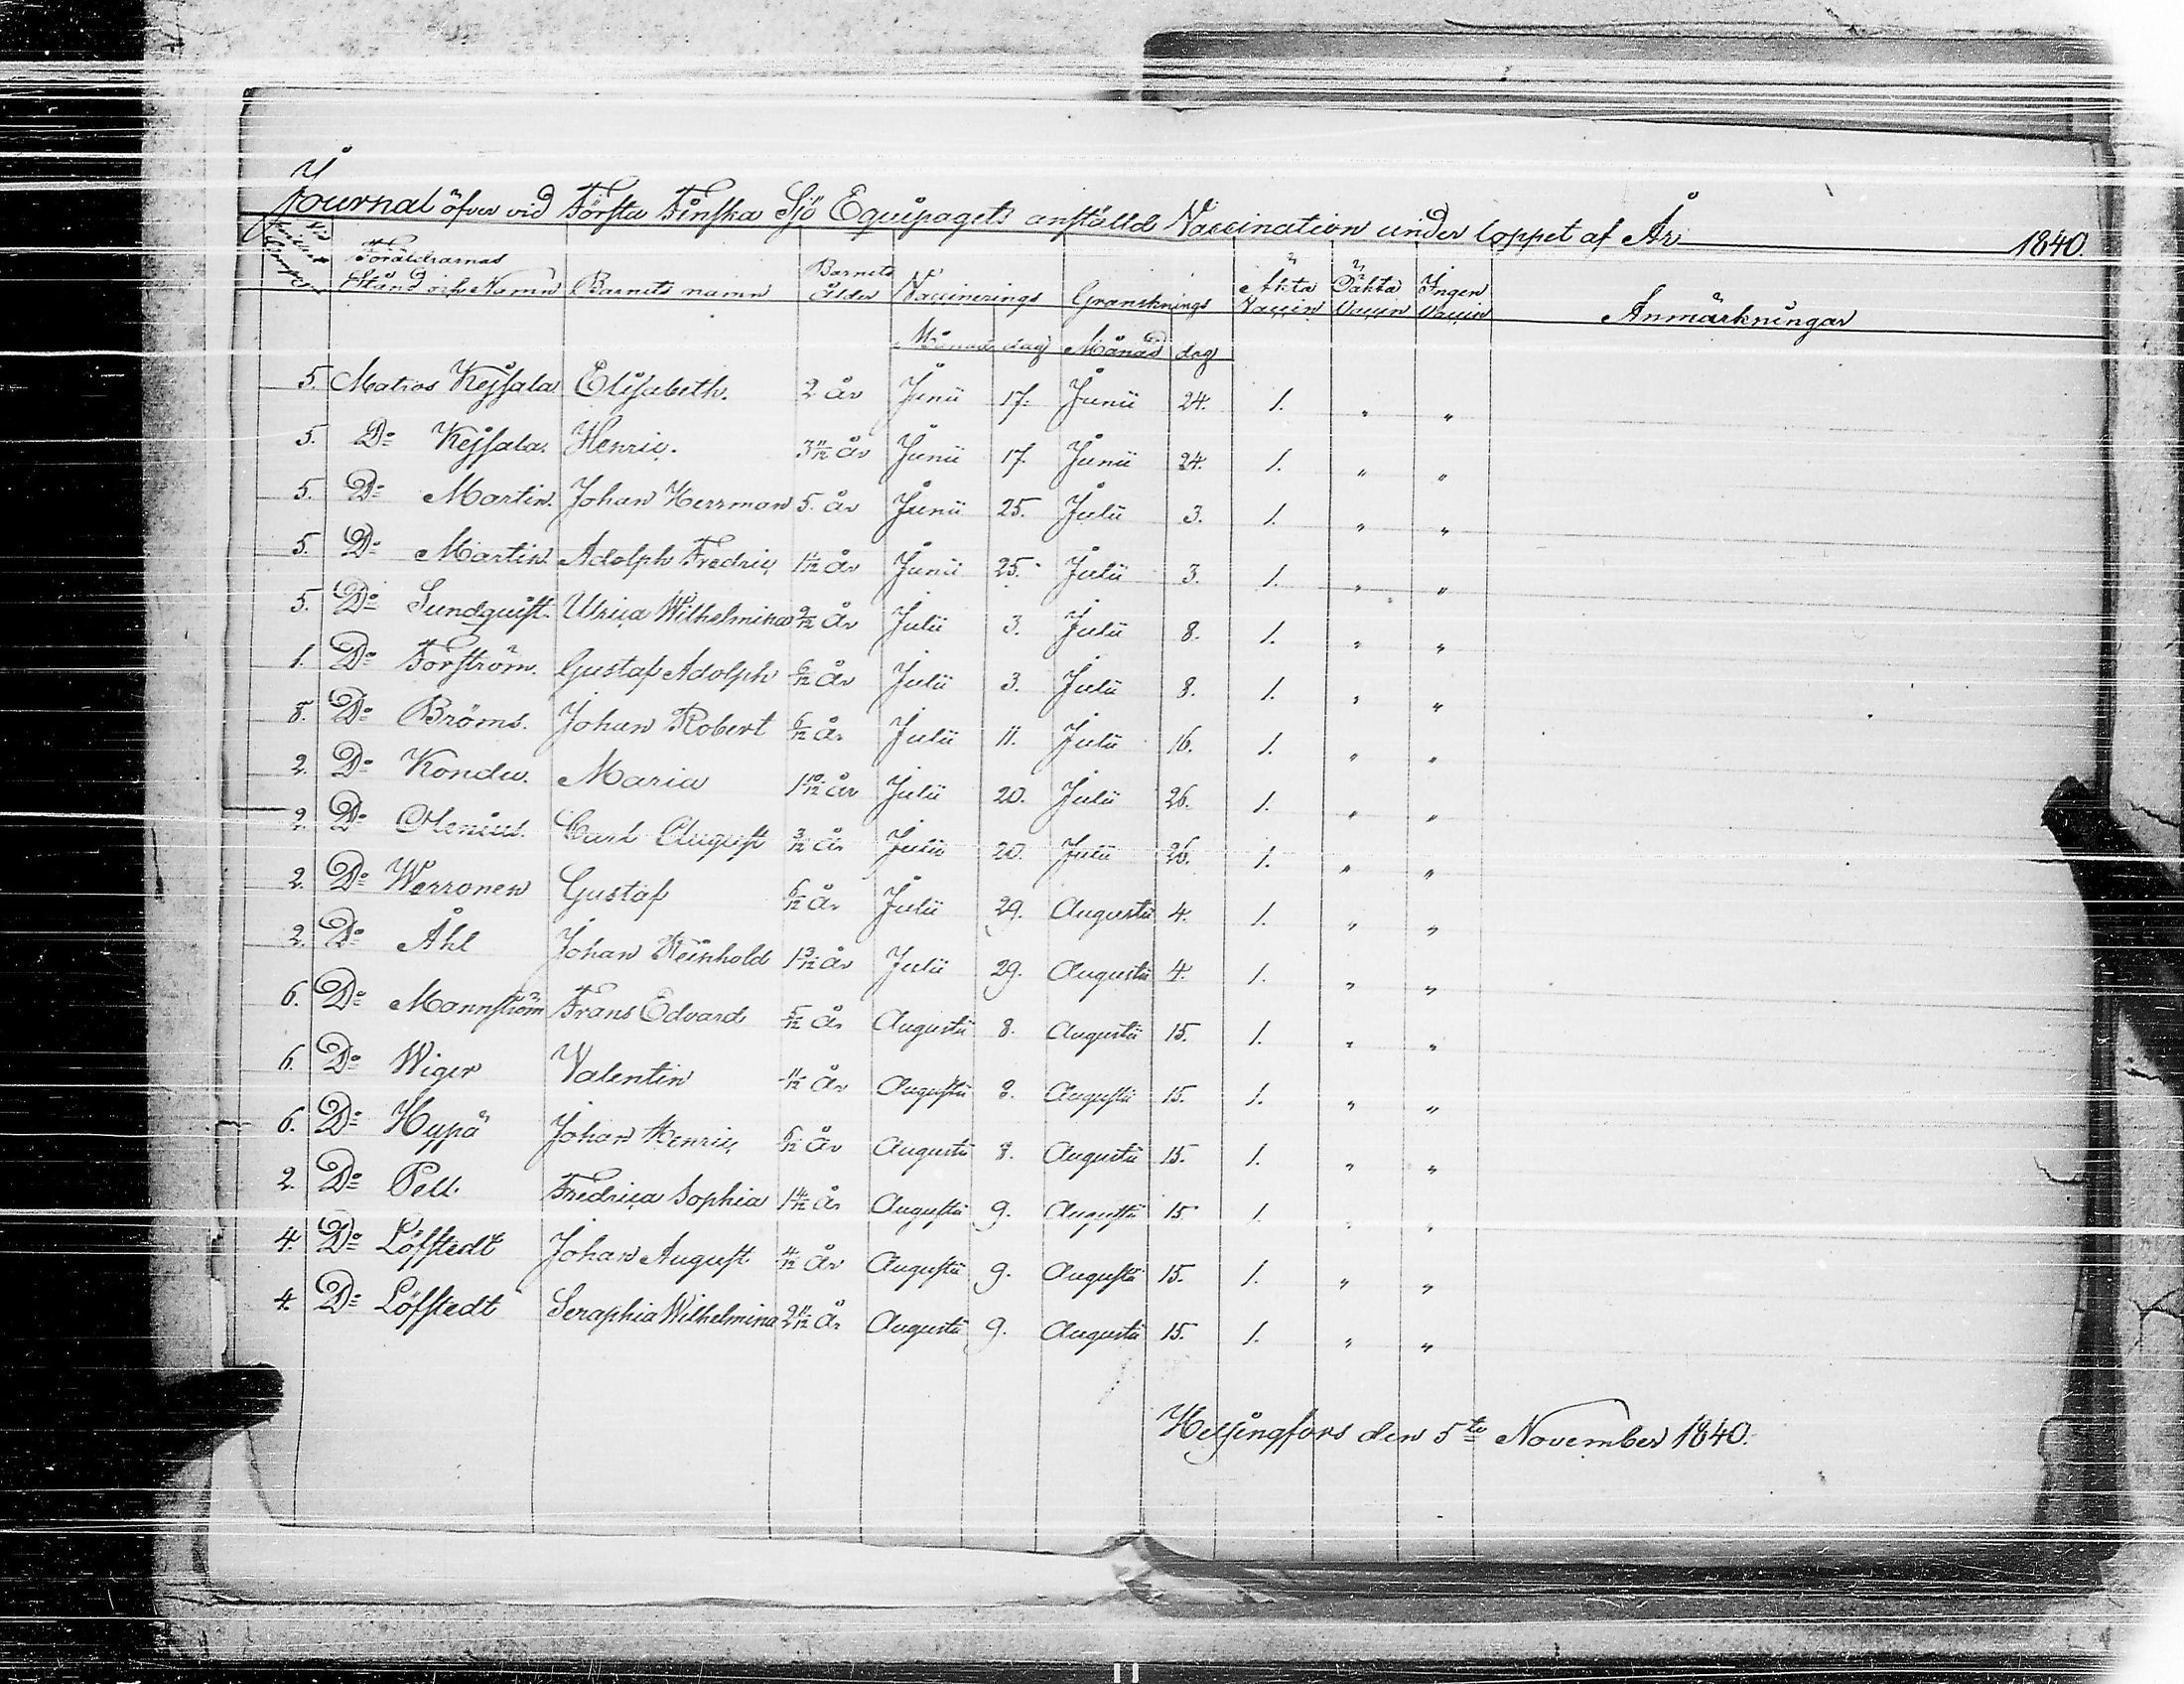 Journal öfver vid Första Finska Sjö Equipagets anställd Vaccination under loppet af År 1840.
Föräldrarnas Stånd och Namn Barnets namn Barnets ålder Vaccinerings Gransknings Äkta Vaccin Oäkta Vaccin Ingen Vaccin Anmärkningar
Månad dag Månad dag
5. Matros Kejsala Elisabeth. 2 år Junii 17. Junii 24. 1. " "
5. Do Kejsala. Henric. 3 11/12 år Junii 17. Junii 24. 1. " "
5. Do Martin. Johan Herrman 5. år Junii 25. Julii 3. 1. " "
5. Do Martin. Adolph Fredric 1 11/12 år Junii 25. Julii 3. 1. " "
5. Do Sundquist. Ulrica Wilhelmina 9/12 år Julii 3. Julii 8. 1. " "
1. Do Forström. Gustaf Adolph 6/12 år Julii 3. Julii 8. 1. " "
8. Do Bröms. Johan Robert 6/12 år Julii 11. Julii 16. 1. " "
2. Do Maria 1 10/12 år Julii 20. Julii 26. 1. " "
2. Do Olenius. Carl August 3/12 år Julii 20. Julii 26. 1. " "
2. Do Werronen Gustaf 6/12 år Julii 29. Augusti 4. 1. " "
2. Do Åhl Johan Reinhold år Julii 29. Augusti 4. 1. " "
6. Do Mannström Frans Edvard 5/12 år Augusti 8. Augusti 15. 1. " "
6. Do Wiger Valentin 11/12 år Augusti 8. Augusti 15. 1. " "
6. Do Hypä Johan Henric 6/12 år Augusti 8. Augusti 15. 1. " "
2. Do Pell. Fredrica Sophia 1 4/12 år Augusti 9. Augusti 15. 1. " "
4. Do Löfstedt Johan August 4/12 år Augusti 9. Augusti 15. 1. " "
4. Do Löfstedt Seraphia Wilhelmina 2 11/12 år Augusti 9. Augusti 15. 1. " "
Helsingfors den 5te November 1840.